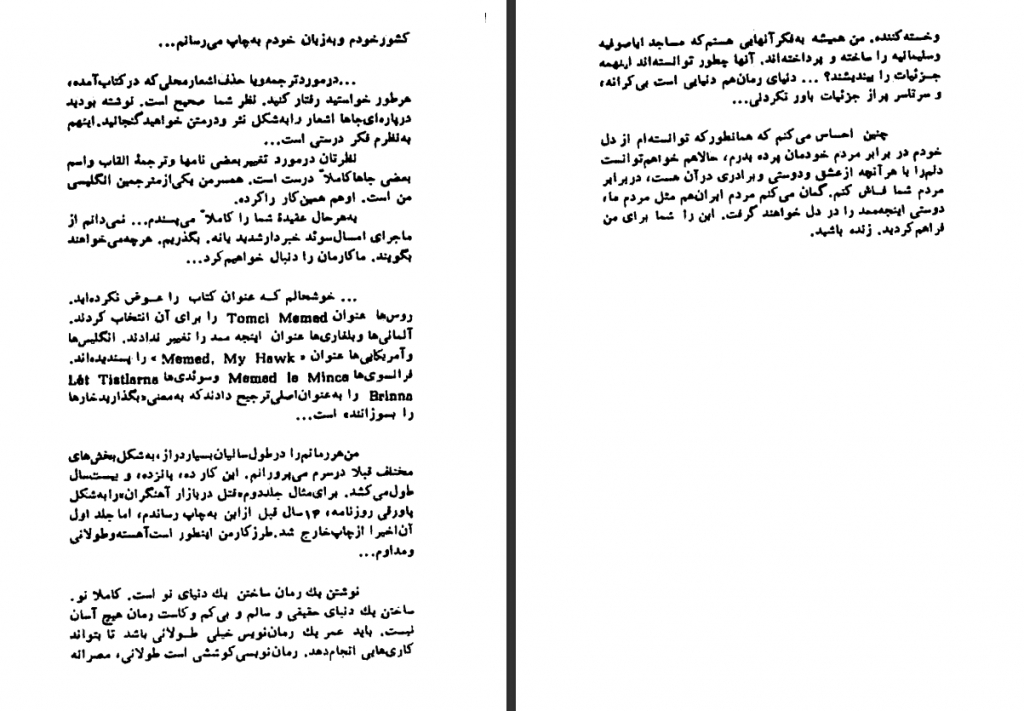 کشورخودم وبه‌زبان خودم به‌چاپ می‌رسانم...
...درموردترجمه‌ویا حذف‌اشعارمحلی‌که درکتاب‌آمده،
هرطور خواستید رفتار کنید. نظر شما صحیح است. نوشته بودید
درپاره‌ای‌جاها اشعار را‌به‌شکل نثر ودرمتن خواهیدگنجانید. اینهم
به‌نظرم فکر درستی است...
نظرتان درمورد تغییربعضی نامها وترجمهٔ القاب واسم
بعضی جاهاکاملاً درست است. همسرمن یکی‌ازمترجمین انگلیسی
من است. اوهم همین‌کار راکرده.
به‌هرحال عقیدهٔ شما را کاملاً می‌پسندم... نمی‌دانم از
ماجرای امسال‌سوئد خبردارشدید یانه. بگذریم. هرچه‌می‌خواهند
بگویند. ماکارمان را دنبال خواهیم‌کرد...
... خوشحالم که عنوان کتاب را عوض نکرده‌اید.
روس‌ها عنوان Tomci Memed را برای آن انتخاب کردند.
آلمانی‌ها وبلغاری‌ها عنوان اینجه ممد را تغییر ندادند. انگلیس‌ها
وآمریکایی‌ها عنوان « Memed, My Hawk » را پسندیده‌اند.
فرانسوی‌ها Memed le Mince وسوئدی‌ها Låt Tistlarna
Brinna را به‌عنوان‌اصلی‌ترجیح دادندکه به‌معنی«بگذاریدخارها
را بسوزانند» است...
من‌هررمانم‌را درطول‌سالیان‌بسیاردراز، به‌شکل‌بخش‌های
مختلف قبلا درسرم می‌پرورانم. این کار ده، پانزده، و بیست‌سال
طول‌می‌کشد. برای‌مثال جلددوم«قتل دربازار آهنگران»رابه‌شکل
پاورقی روزنامه، ۱۴سال قبل ازاین به‌چاپ رساندم، اما جلد اول
آن‌اخیرا ازچاپ‌خارج شد.طرزکارمن اینطور است‌آهسته‌وطولانی
ومداوم...
نوشتن یك رمان ساختن یك دنیای نو است. کاملا نو.
ساختن یك دنیای حقیقی و سالم و بی‌کم وکاست رمان هیچ آسان
نیست. باید عمر یك رمان‌نویس خیلی طولانی باشد تا بتواند
کاری‌هایی انجام‌دهد. رمان‌نویسی‌کوششی است طولانی، مصرانه
وخسته‌کننده. من همیشه به‌فکرآنهایی هستم‌که مساجد ایاصوفیه
وسلیمانیه را ساخته و پرداخته‌اند. آنها چطور توانسته‌اند اینهمه
جزئیات را بیندیشند؟ ... دنیای رمان‌هم دنیایی است بی‌کرانه،
و سرتاسر پراز جزئیات باور نکردنی...
چنین احساس می‌کنم که همانطورکه توانسته‌ام از دل
خودم در برابر مردم خودمان پرده بدرم، حالاهم خواهم‌توانست
دلم‌را با هرآنچه ازعشق ودوستی وبرادری درآن هست، دربرابر
مردم شما فاش کنم.گمان می‌کنم مردم ایران‌هم مثل مردم ما،
دوستی اینجه‌ممد را در دل خواهند گرفت. این را شما برای من
فراهم‌کردید. زنده باشید.